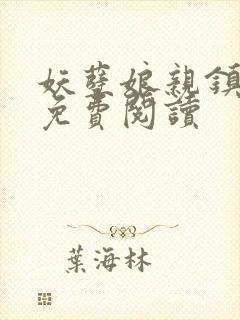 妖孽娘親鎮
免費閱讀
葉海林